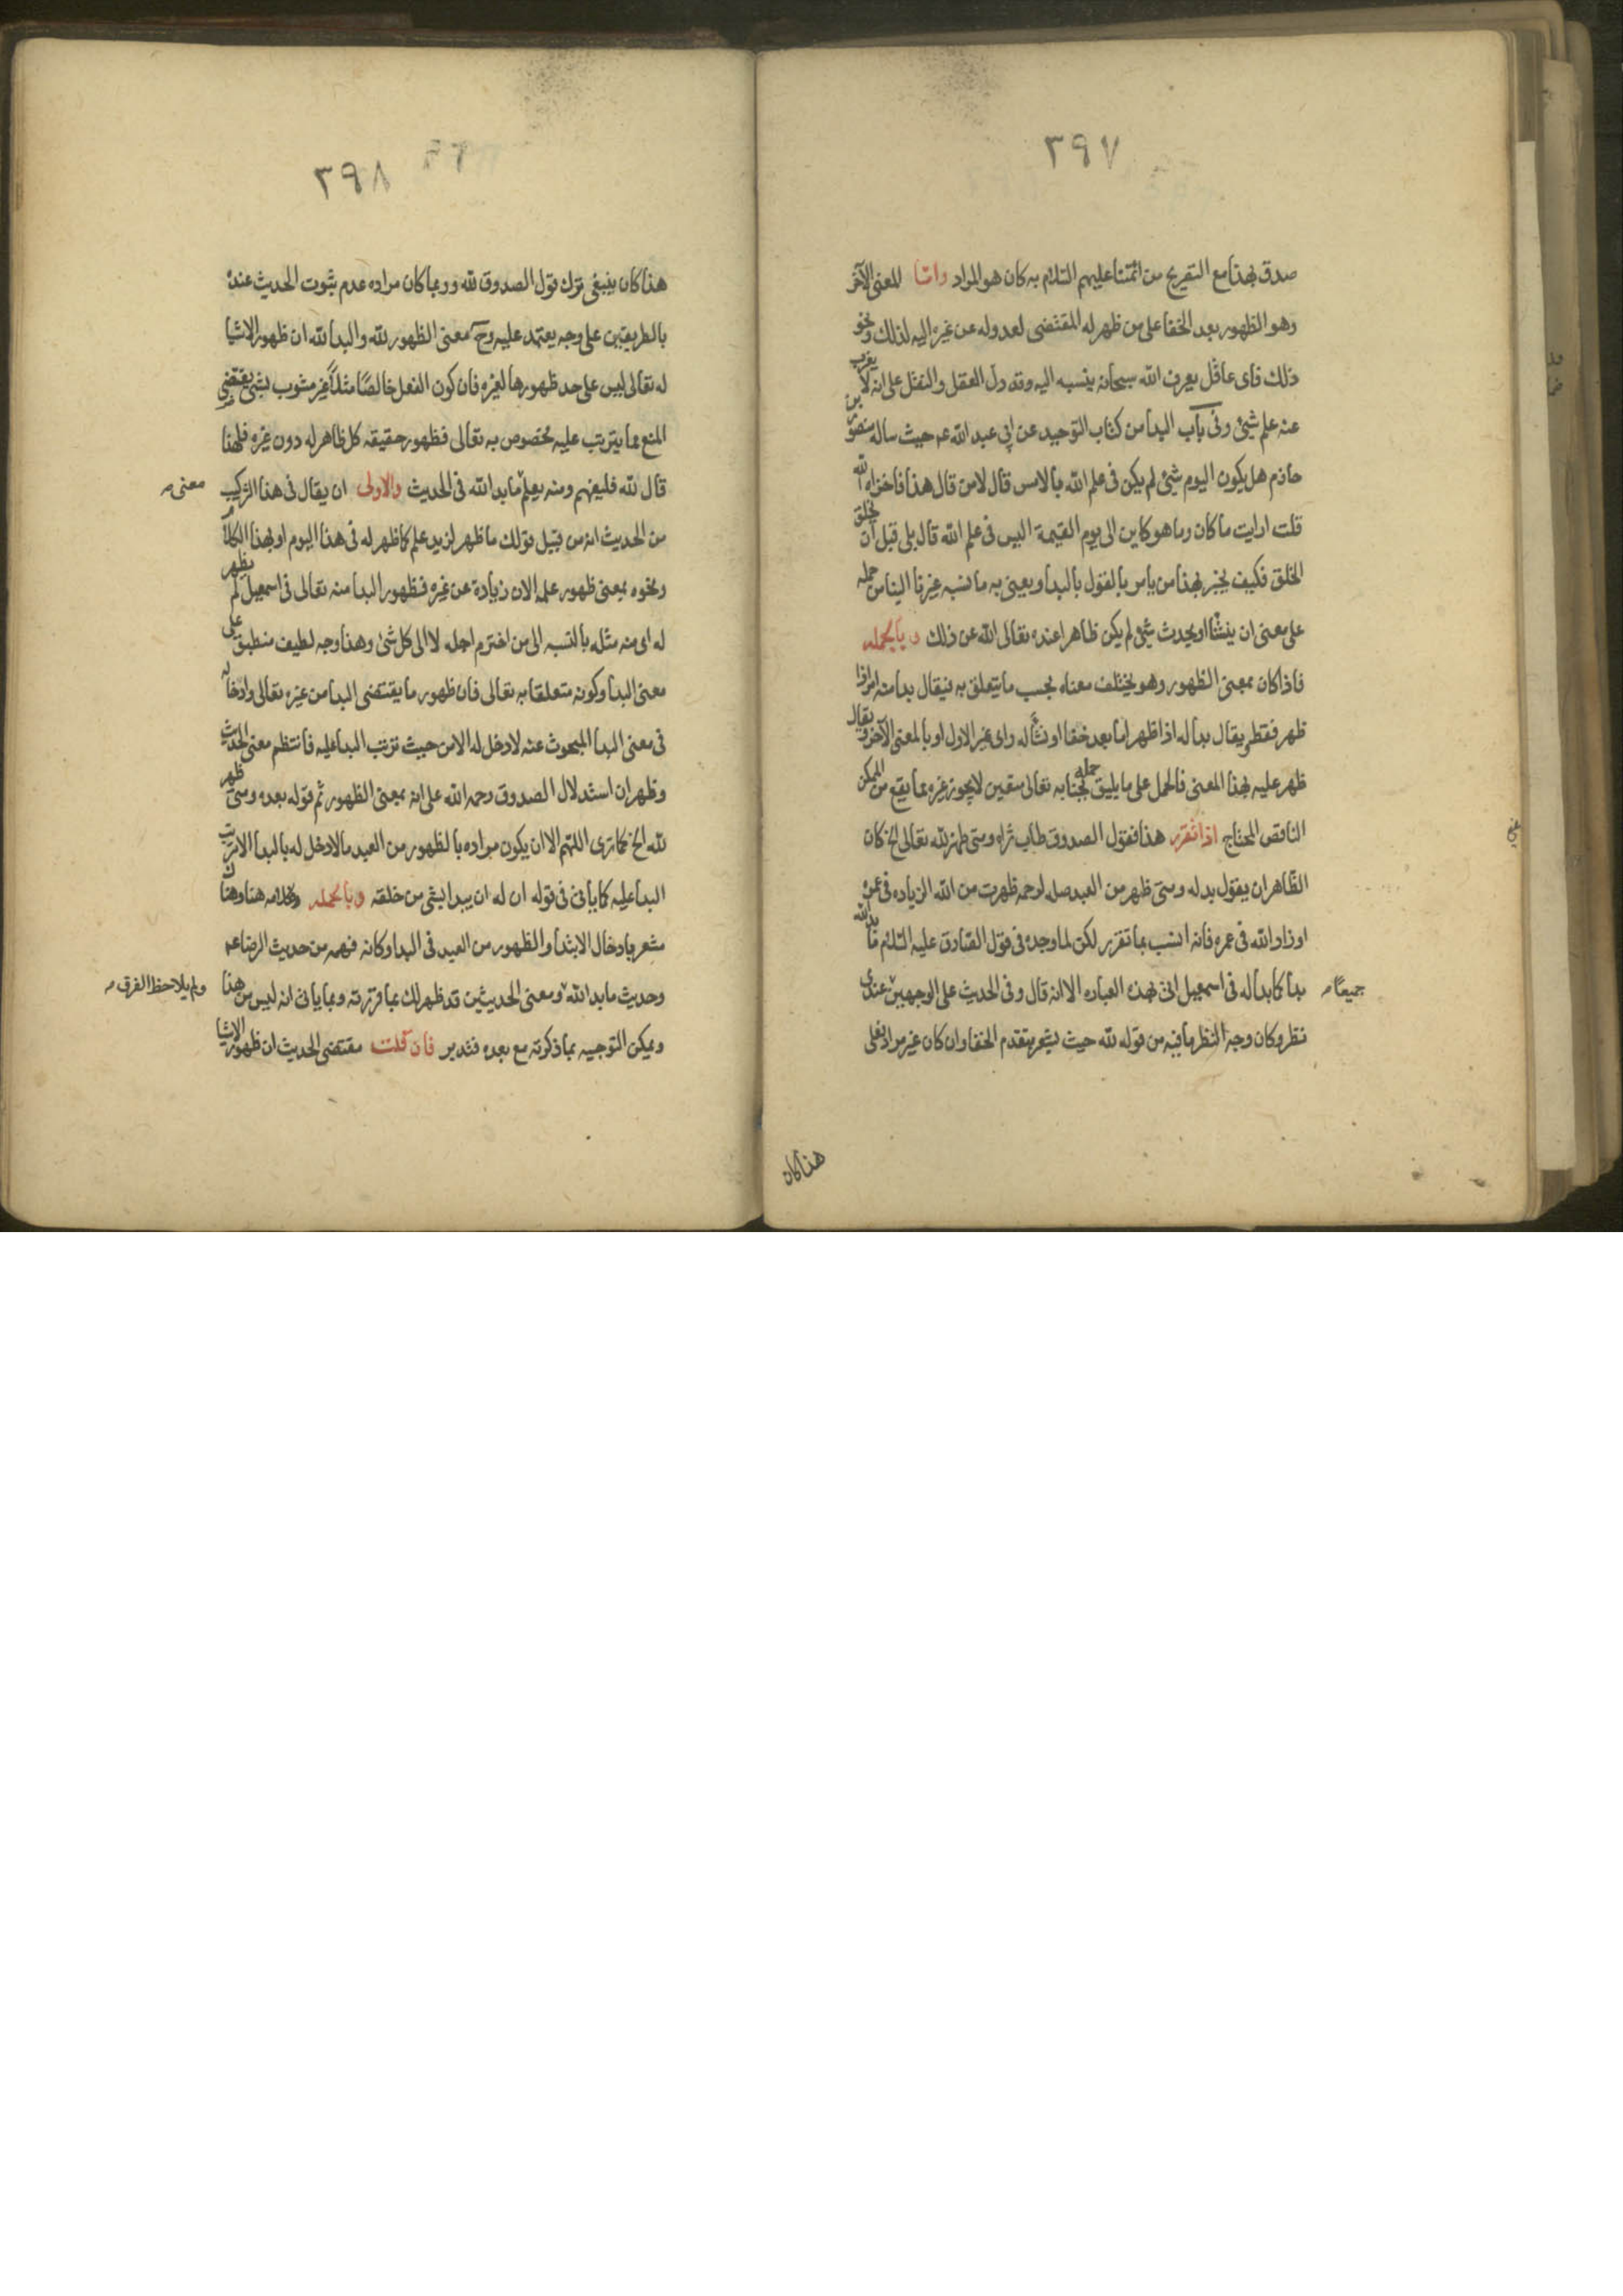 ٣٩٧
صدق بهذا مع التصريح من ائمتنا عليهم السلام به كان هو المراد واما المعنى الآخر
وهو الظهور بعد الخفا على من ظهر له المقتضى لعدوله عن غيره اليه لذلك ونحو
ذلك فاى عاقل يعرف الله سبحانه ينسبه اليه وقد دل العقل والنقل على انه لا يعزب
عنه علم شيئ وفى باب البدا من كتاب التوحيد عن ابى عبد الله عم حيث ساله منصور بن
حازم هل يكون اليوم شيئ لم يكن فى علم الله بالامس قال لا من قال هذا فاخزاه الله
قلت ارايت ما كان وما هو كاين الى يوم القيمة اليس فى علم الله قال بلى قبل ان يخلق
الخلق فكيف يخبر بهذا من يامر بالقول بالبدا ويعنى به ما نسبه غيرنا الينا من حمله
على معنى ان ينشئا او يحدث شيئ لم يكن ظاهرا عنده تعالى الله عن ذلك وبالجمله
فاذا كان بمعنى الظهور وهو يختلف معناه بحسب ما يتعلق به فيقال بدا منه امر اذا
ظهر فقط ويقال بدا له اذا ظهر اما بعد خفا او نشأ له راى غير الاول او بالمعنى الآخر ويقال
ظهر عليه بهذا المعنى فالحمل على ما يليق حمله بجنابه تعالى متعين لا يجوز غيره بما يقع من الممكن
الناقص المحتاج اذا تقرر هذا فقول الصدوق طاب ثراه ومتى ظهر لله تعالى الخ كان
الظاهر ان يقول بدله ومتى ظهر من العبد صله لرحمه ظهرت من الله الزياده فى عمره
او زاد الله فى عمره فانه انسب بما تقرر لكن لما وجده فى قول الصادق عليه السلام ما بدا لله
بدا كما بدا له فى اسمعيل اتى بهذه العباره الا انه قال وفى الحديث على الوجهين عندى
جميعًا
نظر وكان وجه النظر ما فيه من قوله لله حيث يشعر بتقدم الخفا وان كان غير مراد فعلى
هذا كان
٣٩٨
هذا كان ينبغى ترك قول الصدوق لله وربما كان مراده عدم ثبوت الحديث عنده
بالطريقين على وجه يعتمد عليه وح معنى الظهور لله والبدا لله ان ظهور الاشيا
له تعالى ليس على حد ظهورها لغيره فان كون الفعل خالصًا مثلاً غير مشوب بشئ يقتضى
المنع مما يترتب عليه مخصوص به تعالى فظهور حقيقه كل ظاهر له دون غيره فلهذا
قال لله فليفهم ومنه يعلم ما بدا لله فى الحديث والاولى ان يقال فى هذا التركيب
معنى
من الحديث انه من قبيل قولك ما ظهر لزيد علم كما ظهر له فى هذا اليوم او بهذا الكلام
ونحوه بمعنى ظهور علمه الان زيادة عن غيره فظهور البدا منه تعالى فى اسمعيل لم يظهر
له اى منه مثله بالنسبه الى من اخترم اجله لا الى كل شئ وهذا وجه لطيف منطبق على
معنى البدا وكونه متعلقا به تعالى فان ظهور ما يقتضى البدا من غيره تعالى وادخاله
فى معنى البدا المبحوث عنه لا دخل له الا من حيث ترتب البدا عليه فانتظم معنى الحديث
وظهر ان استدلال الصدوق رحمه الله على انه بمعنى الظهور ثم قوله بعده ومتى ظهر
لله الخ كما ترى اللهم الا ان يكون مراده بالظهور من العبد ما لا دخل له بالبدا الا ترتب
البدا عليه كما ياتى فى قوله ان له ان يبدا بشئ من خلقه وبالجمله وكلامه هنا وهناك
مشعر بادخال الابتدا والظهور من العبد فى البدا وكانه فهمه من حديث الرضا عم
وحديث ما بدا لله ومعنى الحديثين قد ظهر لك بما قررته وبما ياتى انه ليس من هذا
ولم يلاحظ الفرق
ويمكن التوجيه بما ذكرته مع بعده فتدبر فان قلت مقتضى الحديث ان ظهور الاشيا